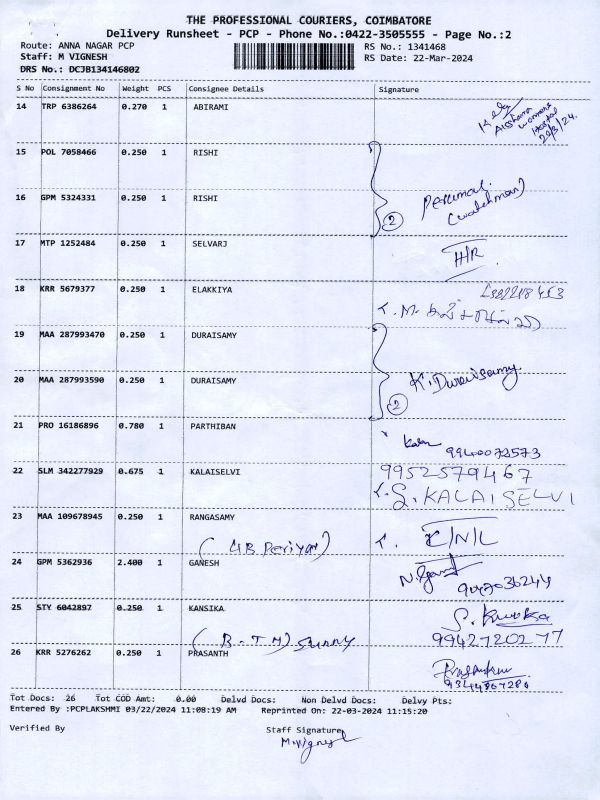 THE PROFESSIONAL COURIERS, COIMBATORE
Delivery Runsheet - PCP - Phone No.:0422-3505555 - Page No.:2
Route: ANNA NAGAR PCP RS No.: 1341468
Staff: M VIGNESH RS Date: 22-Mar-2024
DRS No.: DCJB134146802
S No Consignment No Weight PCS Consignee Details Signature
14 TRP 6386264 0.270 1 ABIRAMI
womens
Hospital
22/3/24.
15 POL 7058466 0.250 1 RISHI
16 GPM 5324331 0.250 1 RISHI
Perumal
(watchman)
2
17 MTP 1252484 0.250 1 SELVARJ
H/R
18 KRR 5679377 0.250 1 ELAKKIYA
19 MAA 287993470 0.250 1 DURAISAMY
20 MAA 287993590 0.250 1 DURAISAMY
K. Duraisamy
2
21 PRO 16186896 0.780 1 PARTHIBAN
9940072573
22 SLM 342277929 0.675 1 KALAISELVI
9952579467
S. KALAISELVI
23 MAA 109678945 0.250 1 RANGASAMY
C/N/L
24 GPM 5362936 2.400 1 GANESH
25 STY 6042897 0.250 1 KANSIKA
9942720277
(B-TM) Sunny
26 KRR 5276262 0.250 1 PRASANTH
9344867286
Tot Docs: 26 Tot COD Amt: 0.00 Delvd Docs: Non Delvd Docs: Delvy Pts:
Entered By :PCPLAKSHMI 03/22/2024 11:08:19 AM Reprinted On: 22-03-2024 11:15:20
Verified By Staff Signature
M.Vignesh